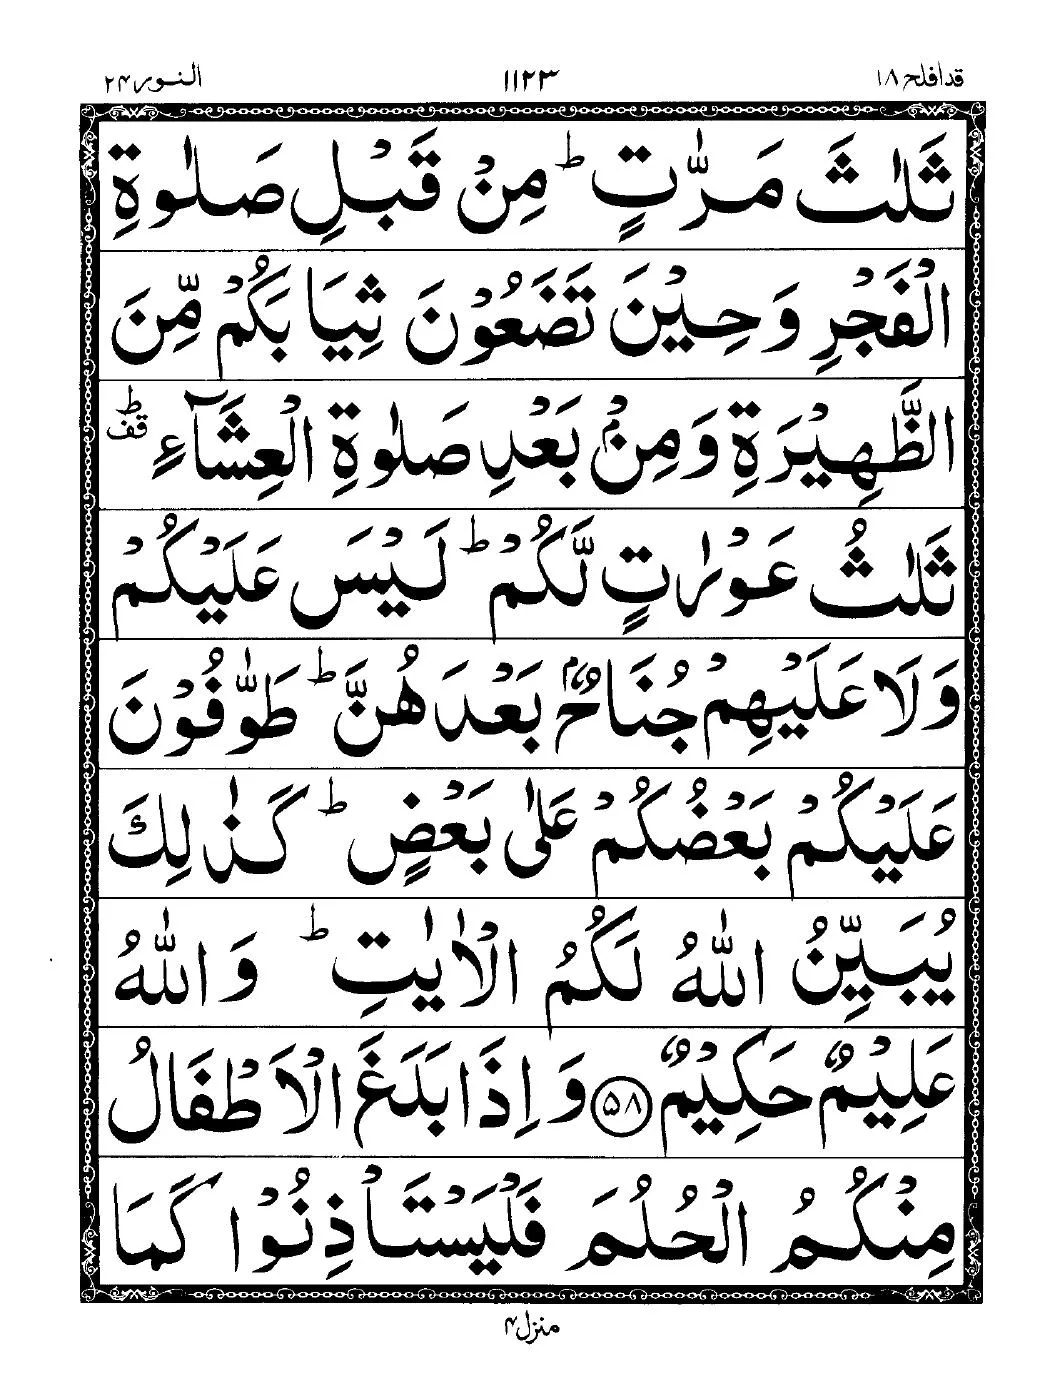 قدافلح ۱۸ ۱۱۲۳ النور ۲۴
ثَلٰثَ مَرّٰتٍ ؕ مِنْ قَبْلِ صَلٰوةِ
الْفَجْرِ وَحِيْنَ تَضَعُوْنَ ثِيَابَكُمْ مِّنَ
الظَّهِيْرَةِ وَمِنْۢ بَعْدِ صَلٰوةِ الْعِشَآءِ ؕ قف
ثَلٰثُ عَوْرٰتٍ لَّكُمْ ؕ لَيْسَ عَلَيْكُمْ
وَلَا عَلَيْهِمْ جُنَاحٌۢ بَعْدَهُنَّ ؕ طَوّٰفُوْنَ
عَلَيْكُمْ بَعْضُكُمْ عَلٰى بَعْضٍ ؕ كَذٰلِكَ
يُبَيِّنُ اللّٰهُ لَكُمُ الْاٰيٰتِ ؕ وَاللّٰهُ
عَلِيْمٌ حَكِيْمٌ ۵۸ وَاِذَا بَلَغَ الْاَطْفَالُ
مِنْكُمُ الْحُلُمَ فَلْيَسْتَاْذِنُوْا كَمَا
منزل ۴